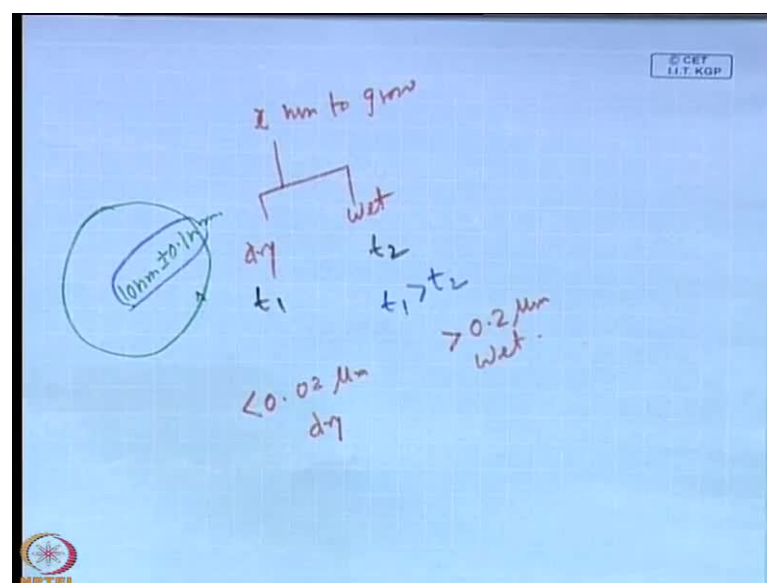 © CET
I.I.T. KGP
x nm to grow
dry wet
t₁ t₂
t₁ > t₂
10nm ± 0.1nm
< 0.02 μm
dry
> 0.2 μm
wet.
NPTEL